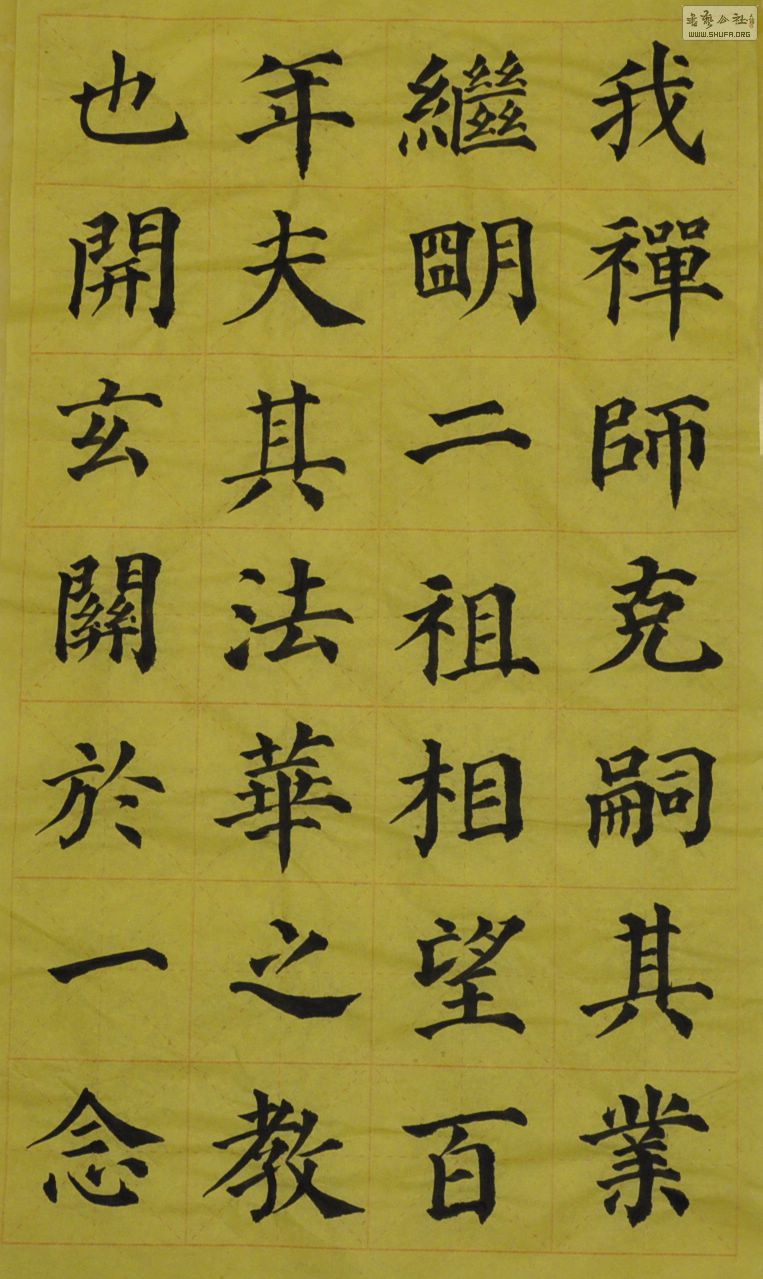 我禪師克嗣其業
繼明二祖相望百
年夫其法華之教
也開玄關於一念
WWW.SHUFA.ORG